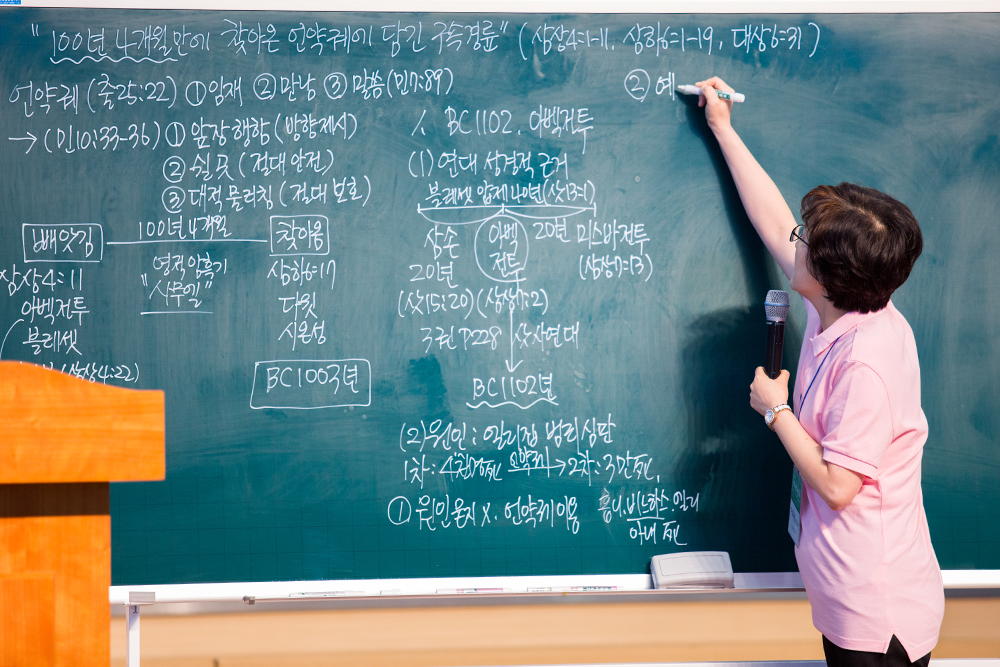 "100년 4개월만에 찾아온 언약궤에 담긴 구속경륜" (삼상4:1-11, 삼하6:1-19, 대상6:31)
언약궤 (출25:22) ①임재 ②만남 ③말씀 (민7:89)
→ (민10:33-36) ① 앞장 행함 (방향제시)
② 쉴 곳 (절대 안전)
③ 대적 물리침 (절대 보호)
빼앗김
100년 4개월
찾아옴
삼상4:11
아벡전투
블레셋
(삼상4:22)
영적 암흑기
"사무엘"
삼하6:17
다윗
시온성
BC1003년
1. BC1102. 아벡전투
(1) 연대 성경적 근거
블레셋 압제 40년 (삿13:1)
삼손
20년
(삿15:20)
아벡
전투
(삼상7:2)
20년 미스바전투
(삼상7:13)
3권 P228 삿사연대
BC1102년
(2) 원인: 엘리집 범죄심판
1차: 4천명死 언약궤 → 2차: 3만死
① 원인 옮지 X. 언약궤 이용
홉니.비느하스.엘리
아내 死
② 예